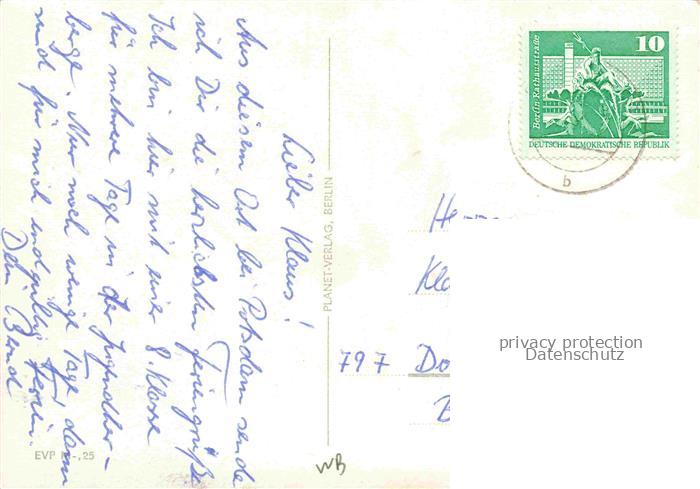 Lieber Klaus!
Aus diesem Ort bei Potsdam sende
ich Dir die herzlichsten Feriengrüße
Ich bin hier mit einer 8. Klasse
für mehrere Tage in der Jugendher-
berge. Nur noch wenige Tage, dann
sind für mich endgültig Ferien.
Dein Bernd
EVP M -,25
PLANET-VERLAG, BERLIN
WB
10
Berlin Rathausstraße
DEUTSCHE DEMOKRATISCHE REPUBLIK
b
797
privacy protection
Datenschutz